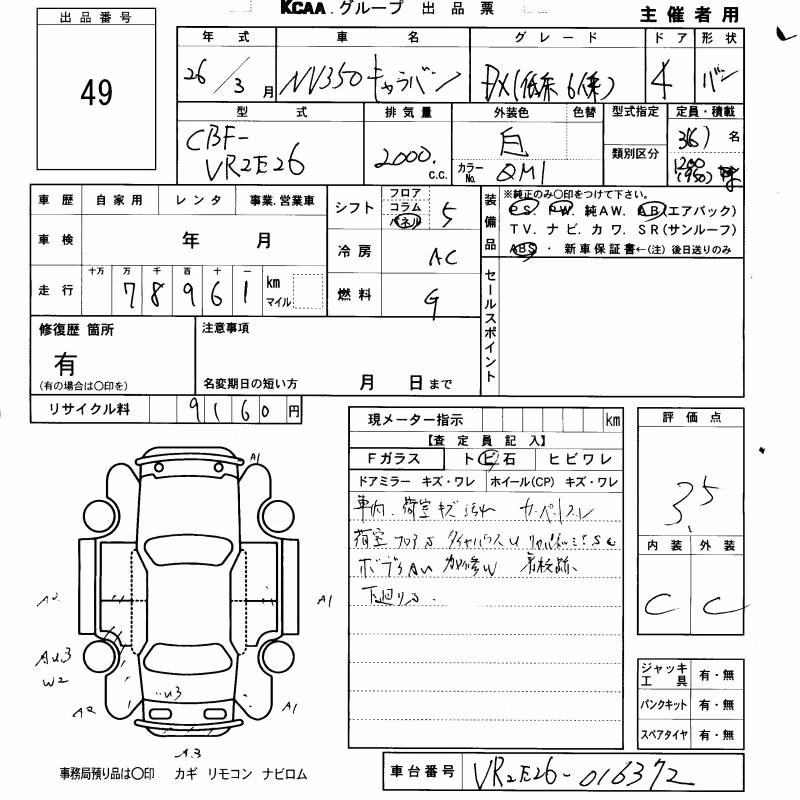 KCAA.グループ 出品票
主催者用
出品番号
49
年式 車名 グレード ドア 形状
26/3月 NV350キャラバン DX(低床6人乗) 4 バン
型式 排気量 外装色 色替 型式指定 定員・積載
CBF-VR2E26 2000 c.c. 白 カラーNo. QM1 類別区分 3(6)名
1200(950)
車歴 自家用 レンタ 事業.営業車
車検 年 月
走行 十万 万 千 百 十 一
78961 km マイル
シフト フロア コラム パネル 5
冷房 AC
燃料 G
装備品 ※純正のみ〇印をつけて下さい。
PS. PW. 純AW. AB(エアバック)
TV. ナビ. カワ. SR(サンルーフ)
ABS ・ 新車保証書←(注) 後日送りのみ
セールスポイント
修復歴 箇所
有
(有の場合は〇印を)
注意事項
名変期日の短い方 月 日まで
リサイクル料 9160円
現メーター指示 km
【査定員記入】
Fガラス トビ石 ヒビワレ
ドアミラー キズ・ワレ ホイール(CP) キズ・ワレ
車内.荷室キズ汚れ カーペットスレ
荷室フロアS タイヤハウスU
ボデーAU 加修W 看板跡.
下廻りS.
評価点
3.5
内装 外装
C C
ジャッキ工具 有・無
パンクキット 有・無
スペアタイヤ 有・無
A1
A2
A1
AU3
W2
U3
A2
A1
A3
事務局預り品は〇印 カギ リモコン ナビロム
車台番号 VR2E26-016372